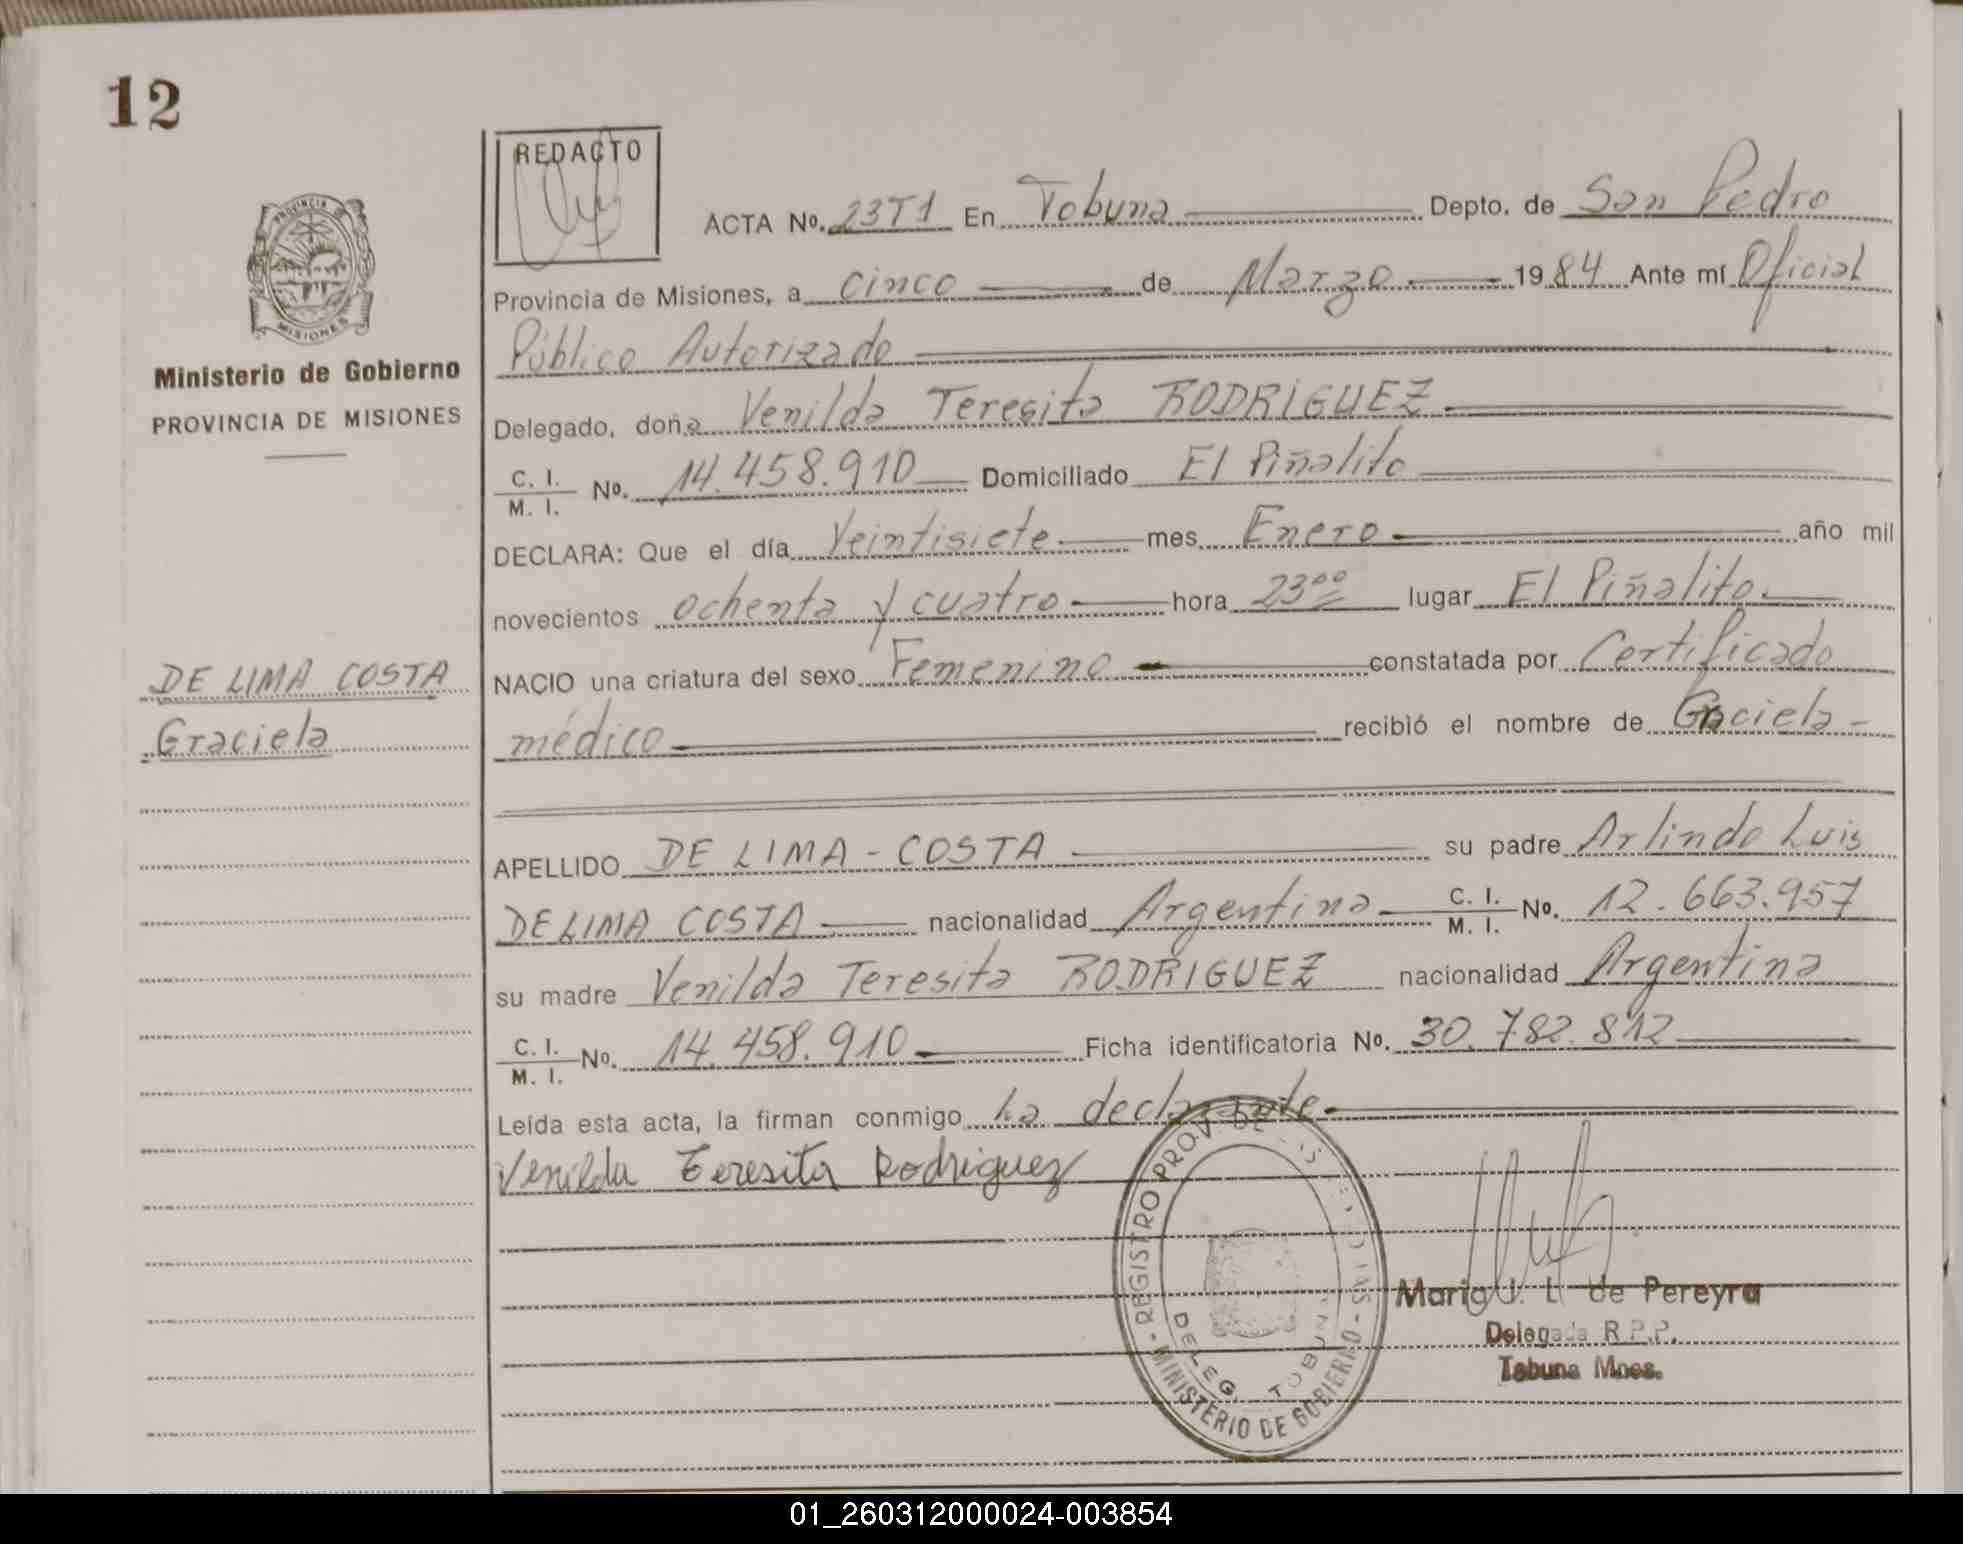 12
REDACTO
PROVINCIA DE
MISIONES
Ministerio de Gobierno
PROVINCIA DE MISIONES
DE LIMA COSTA
Graciela
ACTA No. 23T1 En Tobuna Depto. de San Pedro
Provincia de Misiones, a cinco de Marzo 1984 Ante mí Oficial
Público Autorizado
Delegado, doña Venilda Teresita RODRIGUEZ
C. I.
M. I. No. 14.458.910 Domiciliado El Piñalito
DECLARA: Que el día Veintisiete mes Enero año mil
novecientos ochenta y cuatro hora 23⁰⁰ lugar El Piñalito
NACIO una criatura del sexo Femenino constatada por Certificado
médico recibió el nombre de Graciela
APELLIDO DE LIMA - COSTA su padre Arlindo Luis
DE LIMA COSTA nacionalidad Argentina C. I. M. I. No. 12.663.957
su madre Venilda Teresita RODRIGUEZ nacionalidad Argentina
C. I.
M. I. No. 14.458.910 Ficha identificatoria No. 30.782.812
Leída esta acta, la firman conmigo la declarante
Venilda Teresita Rodriguez
REGISTRO PROV. DE
MINISTERIO DE GOBIERNO
DELEG. TOBUNA
Maria J. L. de Pereyra
Delegada R.P.P.
Tobuna Mnes.
01_260312000024-003854